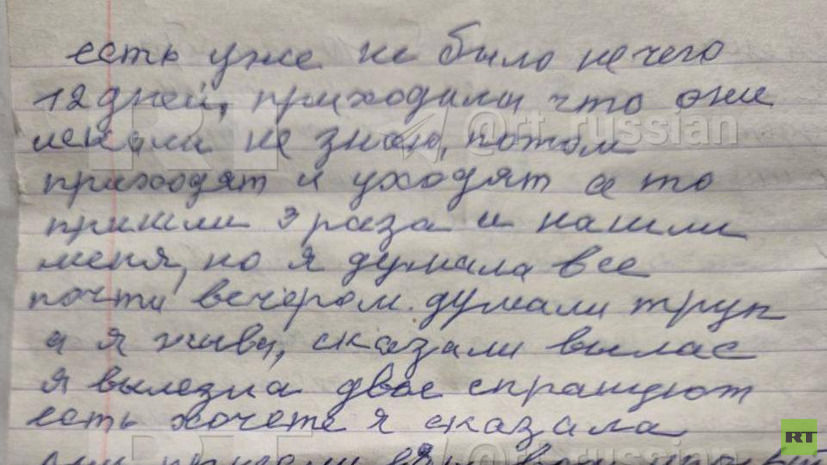 есть уже не было нечего
12 дней, приходили что они
искали не знаю, потом
приходят и уходят а то
пришли 3 раза и нашли
меня, но я думала все
почти вечером. думали труп
а я жива, сказали вылас
я вылезла двое спрашуют
есть хочете я сказала
@rt_russian
RT